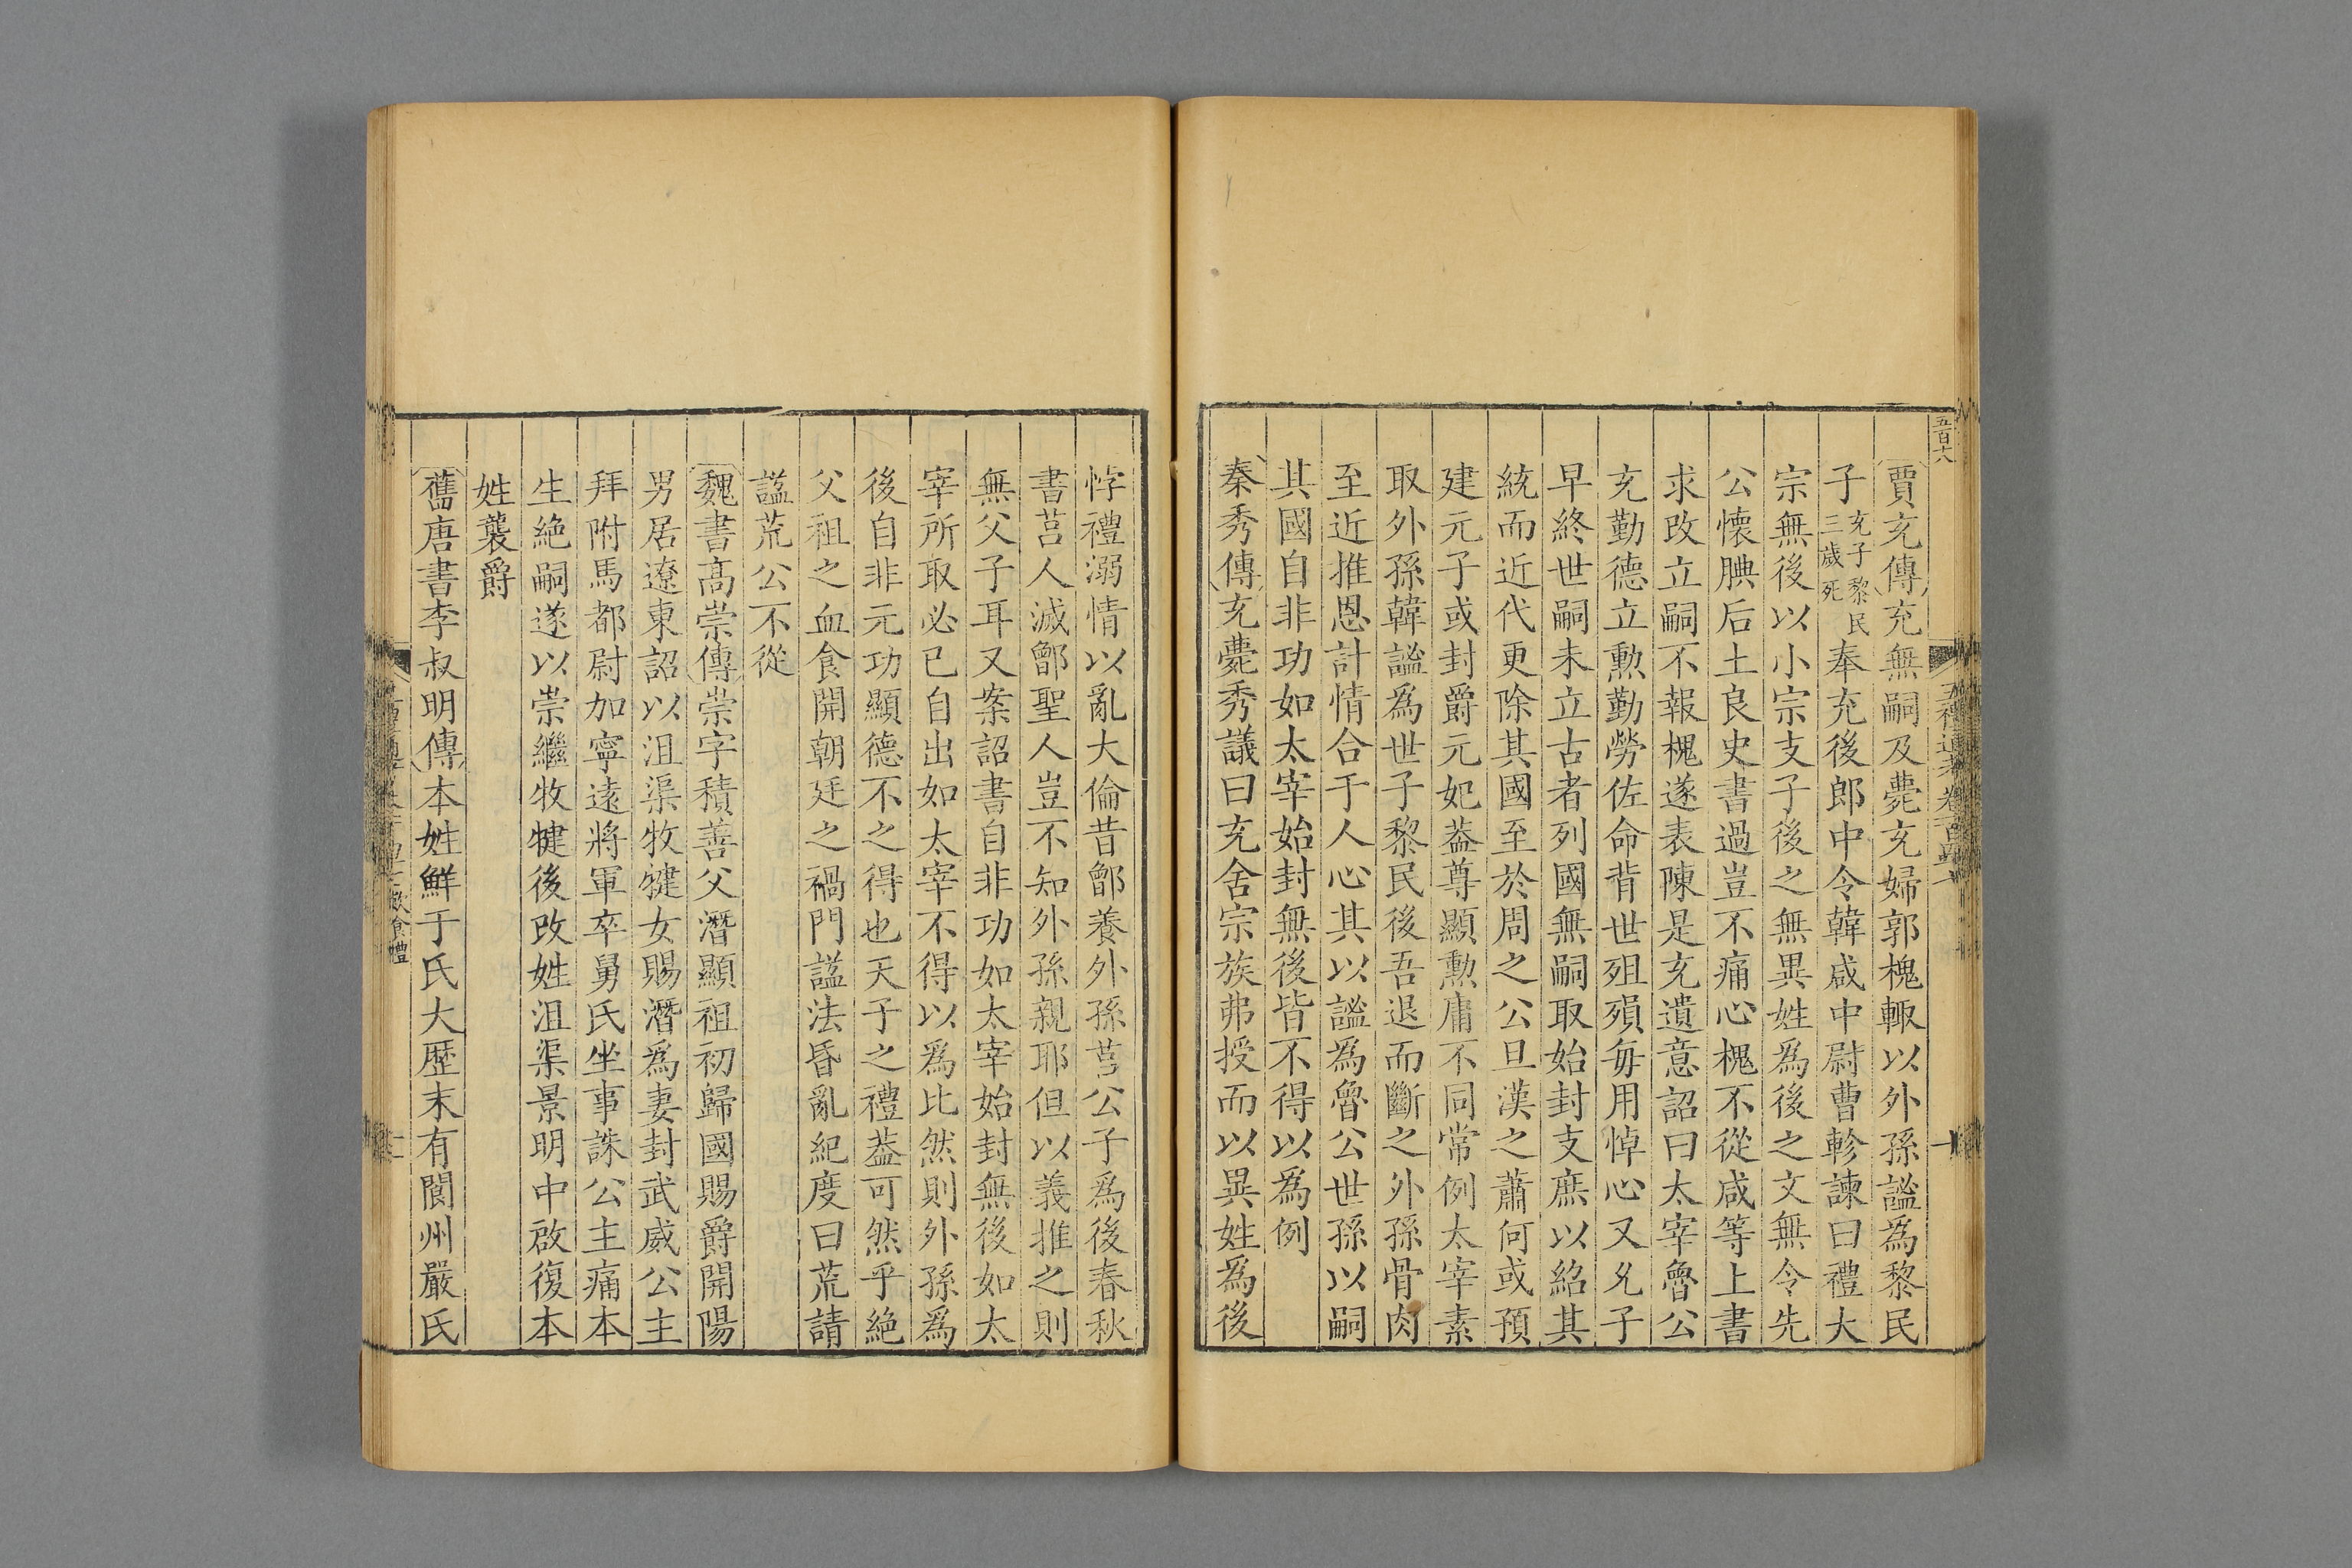 五百大
賈充傳充無嗣及薨充婦郭槐輙以外孫謐為黎民
子充子黎民三歲死奉充後郎中令韓咸中尉曹軫諫曰禮大
宗無後以小宗支子後之無異姓為後之文無令先
公懷腆后土良史書過豈不痛心槐不從咸等上書
求改立嗣不報槐遂表陳是充遺意詔曰太宰魯公
充勤德立勲勤勞佐命背世殂殞每用悼心又𠃔子
早終世嗣未立古者列國無嗣取始封支庶以紹其
統而近代更除其國至於周之公旦漢之蕭何或預
建元子或封爵元妃葢尊顯勲庸不同常例太宰素
取外孫韓謐為世子黎民後吾退而斷之外孫骨肉
至近推恩計情合于人心其以謐為魯公世孫以嗣
其國自非功如太宰始封無後皆不得以為例
秦秀傳充薨秀議曰充舍宗族弗授而以異姓為後
悖禮溺情以亂大倫昔鄫養外孫莒公子為後春秋
書莒人滅鄫聖人豈不知外孫親耶但以義推之則
無父子耳又案詔書自非功如太宰始封無後如太
宰所取必已自出如太宰不得以為比然則外孫為
後自非元功顯德不之得也天子之禮葢可然乎絕
父祖之血食開朝廷之禍門謚法昏亂紀度曰荒請
謚荒公不從
魏書高崇傳崇字積善父潛顯祖初歸國賜爵開陽
男居遼東詔以沮渠牧犍女賜潛為妻封武威公主
拜附馬都尉加寧遠將軍卒舅氏坐事誅公主痛本
生絕嗣遂以崇繼牧犍後改姓沮渠景明中啟復本
姓襲爵
舊唐書李叔明傳本姓鮮于氏大歷末有閬州嚴氏